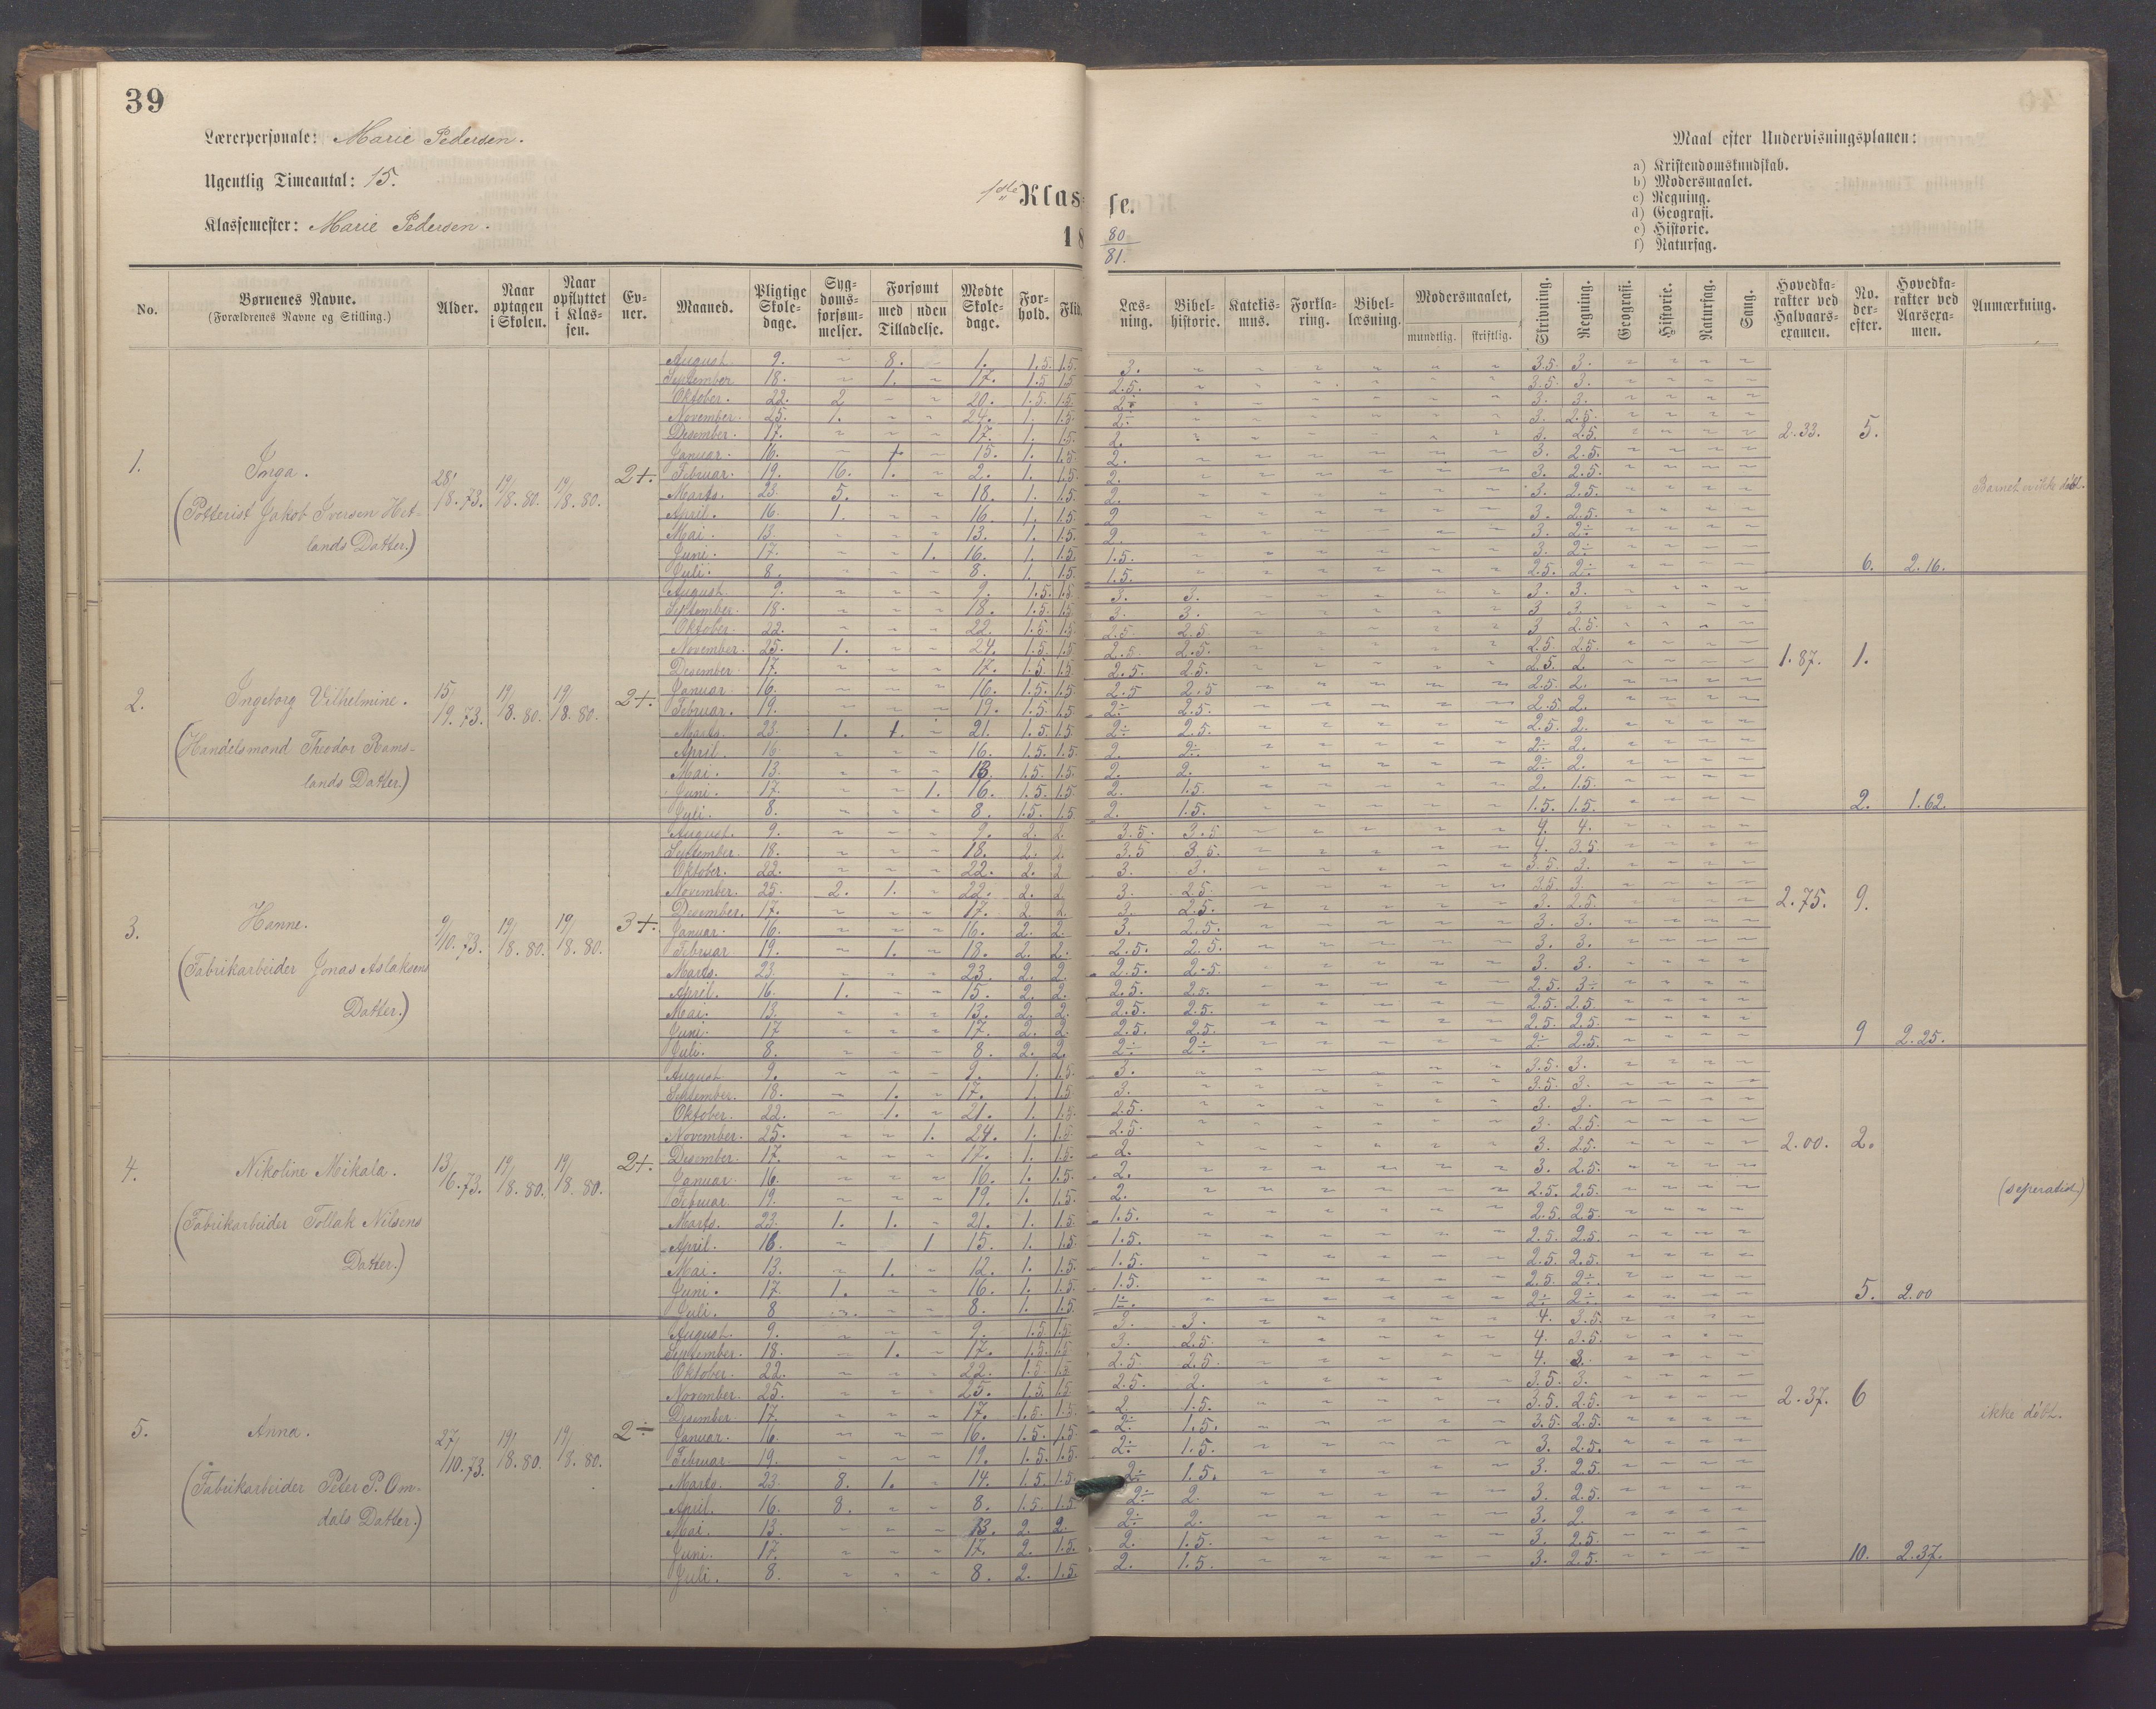 39
Lærerpersonale: Marie Pedersen.
Ugentlig Timeantal: 15.
Klassemester: Marie Pedersen.
1ste Klas- se.
18 80/81.
Maal efter Undervisningsplanen:
a) Kristendomskundskab.
b) Modersmaalet.
c) Regning.
d) Geografi.
e) Historie.
f) Naturfag.
No. | Børnenes Navne. (Forældrenes Navne og Stilling.) | Alder. | Naar optagen i Skolen. | Naar opflyttet i Klassen. | Evner. | Maaned. | Pligtige Skoledage. | Sygdomsforsømmelser. | Forsømt med / uden Tilladelse. | Mødte Skoledage. | Forhold. | Flid. | Læsning. | Bibelhistorie. | Katekismus. | Forklaring. | Bibellæsning. | Modersmaalet, mundtlig. skriftlig. | Skrivning. | Regning. | Geografi. | Historie. | Naturfag. | Sang. | Hovedkarakter ved Halvaarsexamen. | No. derefter. | Hovedkarakter ved Aarsexamen. | Anmærkning.
1. Inga. 28/8.73. 19/8.80. 19/8.80. 2+.
(Potterist Jakob Iversen Hetlands Datter.)
August. 9. ~ 8. 1. 1.5. 1.5. 3. 3.5. 3.
September 18. ~ 1. ~ 17. 1.5 1.5 2.5. 3.5. 3.
Oktober. 22. 2 ~ ~ 20. 1.5. 1.5. 2÷ 3. 3.
November. 25. 1. ~ ~ 24. 1. 1.5. 2÷ 3. 2.5.
Desember. 17. ~ ~ ~ 17. 1. 1.5. 2. 3. 2.5. 2.33. 5.
Januar. 16. 15. 1. 1.5. 2. 3. 2.5.
Februar. 19. 16. 1. ~ 2. 1. 1.5. 2. 3. 2.5.
Marts. 23. 5. ~ ~ 18. 1. 1.5. 2. 3. 2.5. Barnet er ikke døbt.
April. 16. 1. ~ ~ 16. 1. 1.5. 2 3. 2.5.
Mai. 13. ~ ~ ~ 13. 1. 1.5. 2. 3. 2÷
Juni. 17. ~ ~ 1. 16. 1. 1.5. 1.5. 3. 2÷
Juli. 8. ~ ~ ~ 8. 1. 1.5. 1.5. 2.5. 2÷ 6. 2.16.
2. Ingeborg Vilhelmine. 15/9.73. 19/8.80. 19/8.80. 2+.
(Handelsmand Theodor Ramslands Datter.)
August. 9. ~ ~ ~ 9. 1.5. 1.5. 3. 3. 3. 3.
September. 18. ~ ~ ~ 18. 1.5. 1.5 3. 3. 3 3.
Oktober. 22. ~ ~ ~ 22. 1.5. 1.5. 2.5. 2.5. 3 2.5.
November. 25. 1. ~ ~ 24. 1.5. 1.5 2.5. 2.5. 2.5 2.5.
Desember. 17. ~ ~ ~ 17. 1.5 1.5 2.5. 2.5. 2.5. 2. 1.87. 1.
Januar. 16. ~ ~ ~ 16. 1.5. 1.5 2.5 2.5 2.5. 2.
Februar. 19. ~ ~ ~ 19. 1.5. 1.5 2÷ 2.5. 2.5 2.
Marts. 23. 1. 1. ~ 21. 1.5. 1.5 2÷ 2.5. 2.5 2.
April. 16. ~ ~ ~ 16. 1.5. 1.5. 2. 2÷ 2÷ 2.
Mai. 13. ~ ~ ~ 13. 1.5. 1.5. 2. 2. 2÷ 2.
Juni. 17. ~ ~ 1. 16. 1.5. 1.5 2. 1.5. 2. 1.5.
Juli. 8. ~ ~ ~ 8. 1.5. 1.5. 2. 1.5. 1.5. 1.5. 2. 1.62.
3. Hanne. 9/10.73. 19/8.80. 19/8.80. 3+.
(Fabrikarbeider Jonas Aslaksens Datter.)
August. 9. ~ ~ ~ 9. 2. 2. 3.5. 3.5 4. 4.
September. 18. ~ ~ ~ 18. 2. 2. 3.5 3.5. 4. 3.5.
Oktober. 22. ~ ~ ~ 22. 2. 2 3. 3. 3.5. 3.
November. 25. 2. 1. ~ 22. 2. 2 3. 2.5. 3.5. 3.
Desember. 17. ~ ~ ~ 17. 2. 2. 3. 2.5. 3. 2.5. 2.75. 9.
Januar. 16. ~ ~ ~ 16. 2. 2. 3. 2.5. 3. 3.
Februar 19. ~ 1. ~ 18. 2. 2. 2.5. 2.5. 3. 3.
Marts. 23. ~ ~ ~ 23. 2. 2. 2.5. 2.5. 3. 3.
April. 16. 1. ~ ~ 15. 2. 2. 2.5. 2.5. 2.5. 3÷
Mai. 13. ~ ~ ~ 13. 2. 2. 2.5. 2.5. 2.5. 2.5.
Juni. 17 ~ ~ ~ 17. 2. 2. 2.5. 2.5. 2.5. 2.5.
Juli. 8. ~ ~ ~ 8. 2. 2. 2÷ 2÷ 2÷ 2.5. 9 2.25.
4. Nikoline Mikala. 13/6.73. 19/8.80. 19/8.80. 2+.
(Fabrikarbeider Tollak Nilsens Datter.)
August 9. ~ ~ ~ 9. 1. 1.5. 3. 3.5. 3.
September. 18. ~ 1. ~ 17. 1. 1.5. 3. 3.5. 3.
Oktober. 22. ~ 1. ~ 21. 1. 1.5. 2.5. 3. 3.
November. 25. ~ ~ 1. 24. 1. 1.5. 2.5. 3. 2.5.
Desember. 17. ~ ~ ~ 17. 1. 1.5. 2. 3. 2.5. 2.00. 2.
Januar. 16. ~ ~ ~ 16. 1. 1.5. 2. 3. 2.5.
Februar. 19. ~ ~ ~ 19. 1. 1.5. 2. 2.5. 2.5. (seperatist.)
Marts. 23. 1. 1. ~ 21. 1. 1.5. 1.5. 2.5. 2.5.
April. 16. ~ 1 15. 1. 1.5. 1.5. 2.5. 2.5.
Mai. 13. ~ 1. ~ 12. 1. 1.5. 1.5. 2.5. 2.5.
Juni. 17. 1. ~ ~ 16. 1. 1.5. 1.5. 2.5. 2÷
Juli. 8 ~ ~ ~ 8. 1. 1.5. 1÷ 2÷ 2÷ 5. 2.00
5. Anna. 27/10.73. 19/8.80. 19/8.80. 2÷
(Fabrikarbeider Peter P. Omdals Datter.)
August. 9. ~ ~ ~ 9. 1.5 1.5. 3. 3. 4. 3.5.
September. 18. ~ 1. ~ 17. 1.5. 1.5 3. 2.5. 4. 3.5.
Oktober. 22. ~ ~ ~ 22. 1.5 1.5 2.5. 2.5. 4. 3.
November. 25. ~ ~ ~ 25. 1.5. 1.5 2.5. 2. 3.5. 3.
Desember. 17. ~ ~ ~ 17. 1.5. 1.5. 2. 1.5. 3.5. 2.5. 2.37. 6
Januar. 16. ~ ~ ~ 16. 1.5. 1.5. 2÷ 1.5. 3.5. 2.5. ikke døbt.
Februar. 19. ~ ~ ~ 19. 1.5. 1.5. 2÷ 1.5. 3. 2.5.
Marts. 23. 8. 1. ~ 14. 1.5. 1.5. 2÷ 1.5. 3. 2.5
April. 16. 8. ~ ~ 8. 1.5. 1.5 2÷ 2. 3. 2.5.
Mai. 13. ~ ~ ~ 13. 2. 2. 2÷ 2. 3. 2.
Juni. 17. ~ ~ ~ 17. 2. 1.5. 2. 1.5. 3. 2.5.
Juli. 8. ~ ~ ~ 8. 2. 1.5. 2. 1.5. 3. 2.5. 10. 2.37.